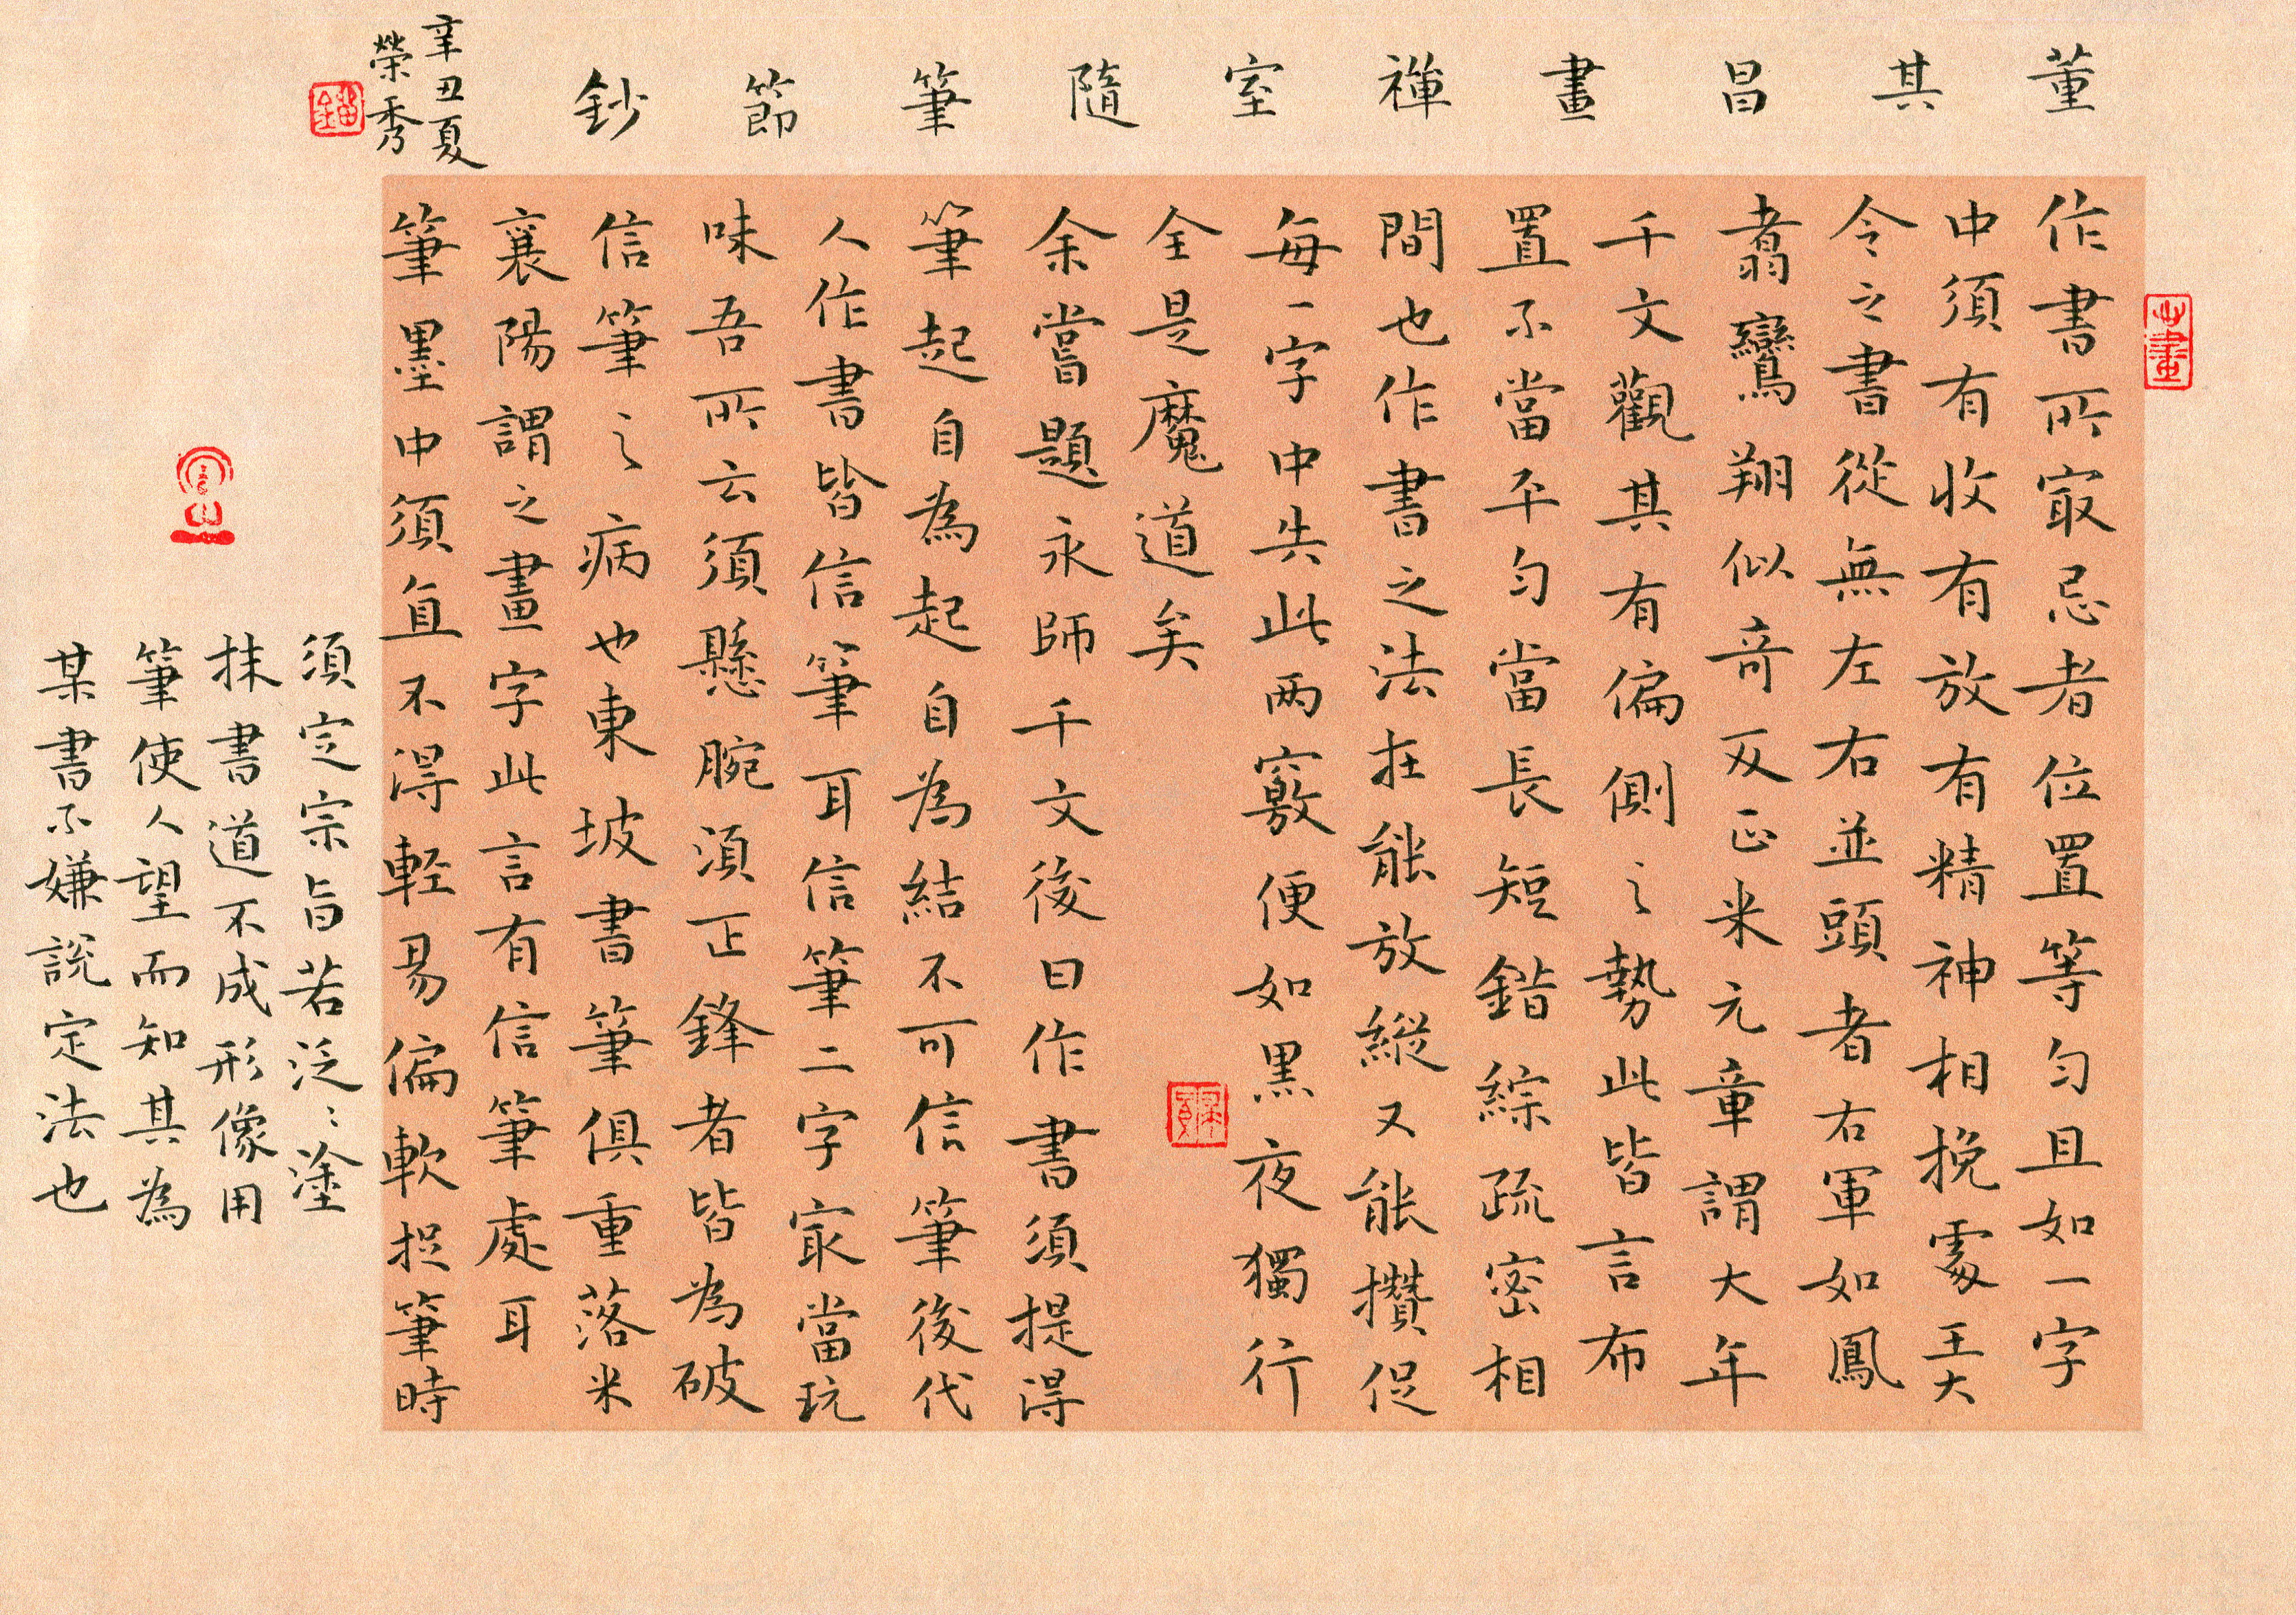 董其昌畫禪室隨筆節鈔
辛丑夏
榮秀
作書所㝡忌者位置等勻且如一字
中須有收有放有精神相挽處王大
令之書從無左右並頭者右軍如鳳
翥鸞翔似奇反正米元章謂大年
千文觀其有偏側之勢此皆言布
置不當平勻當長短錯綜疏密相
間也作書之法在能放縱又能攢促
每一字中失此兩竅便如黑夜獨行
全是魔道矣
余嘗題永師千文後曰作書須提得
筆起自為起自為結不可信筆後代
人作書皆信筆耳信筆二字㝡當玩
味吾所云須懸腕須正鋒者皆為破
信筆之病也東坡書筆俱重落米
襄陽謂之畫字此言有信筆處耳
筆墨中須直不得輕易偏軟捉筆時
須定宗旨若泛泛塗
抹書道不成形像用
筆使人望而知其為
某書不嫌說定法也